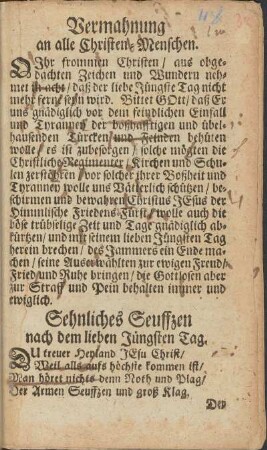 Vermahnung
an alle Christen-Menschen.
O Ihr frommen Christen / aus obge-
dachten Zeichen und Wundern neh-
met in acht / daß der liebe Jüngste Tag nicht
mehr fern seyn wird. Bittet GOtt / daß Er
uns gnädiglich vor dem feindlichen Einfall
und Tyranney der boßhafftigen und übel-
hausenden Türcken und Feinden behüten
wolle / es ist zubesorgen / solche möchten die
Christliche Regimenter / Kirchen und Schu-
len zerstöhren / vor solcher ihrer Boßheit und
Tyranney wolle uns Väterlich schützen / be-
schirmen und bewahren Christus JEsus der
Himmlische Friedens-Fürst / wolle auch die
böse trübselige Zeit und Tage gnädiglich ab-
kürtzen / und mit seinem lieben Jüngsten Tag
herein brechen / des Jammers ein Ende ma-
chen / seine Auserwählten zur ewigen Freud /
Fried und Ruhe bringen / die Gottlosen aber
zur Straff und Pein behalten immer und
ewiglich.
Sehnliches Seuffzen
nach dem lieben Jüngsten Tag.
DU treuer Heyland JEsu Christ /
Weil alls aufs höchste kommen ist /
Man höret nichts denn Noth und Plag /
Der Armen Seuffzen und groß Klag,
Der